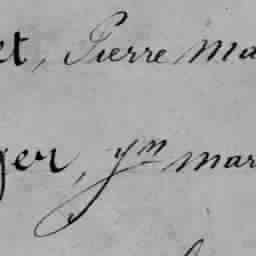 et, Pierre Ma
ger, ym mar